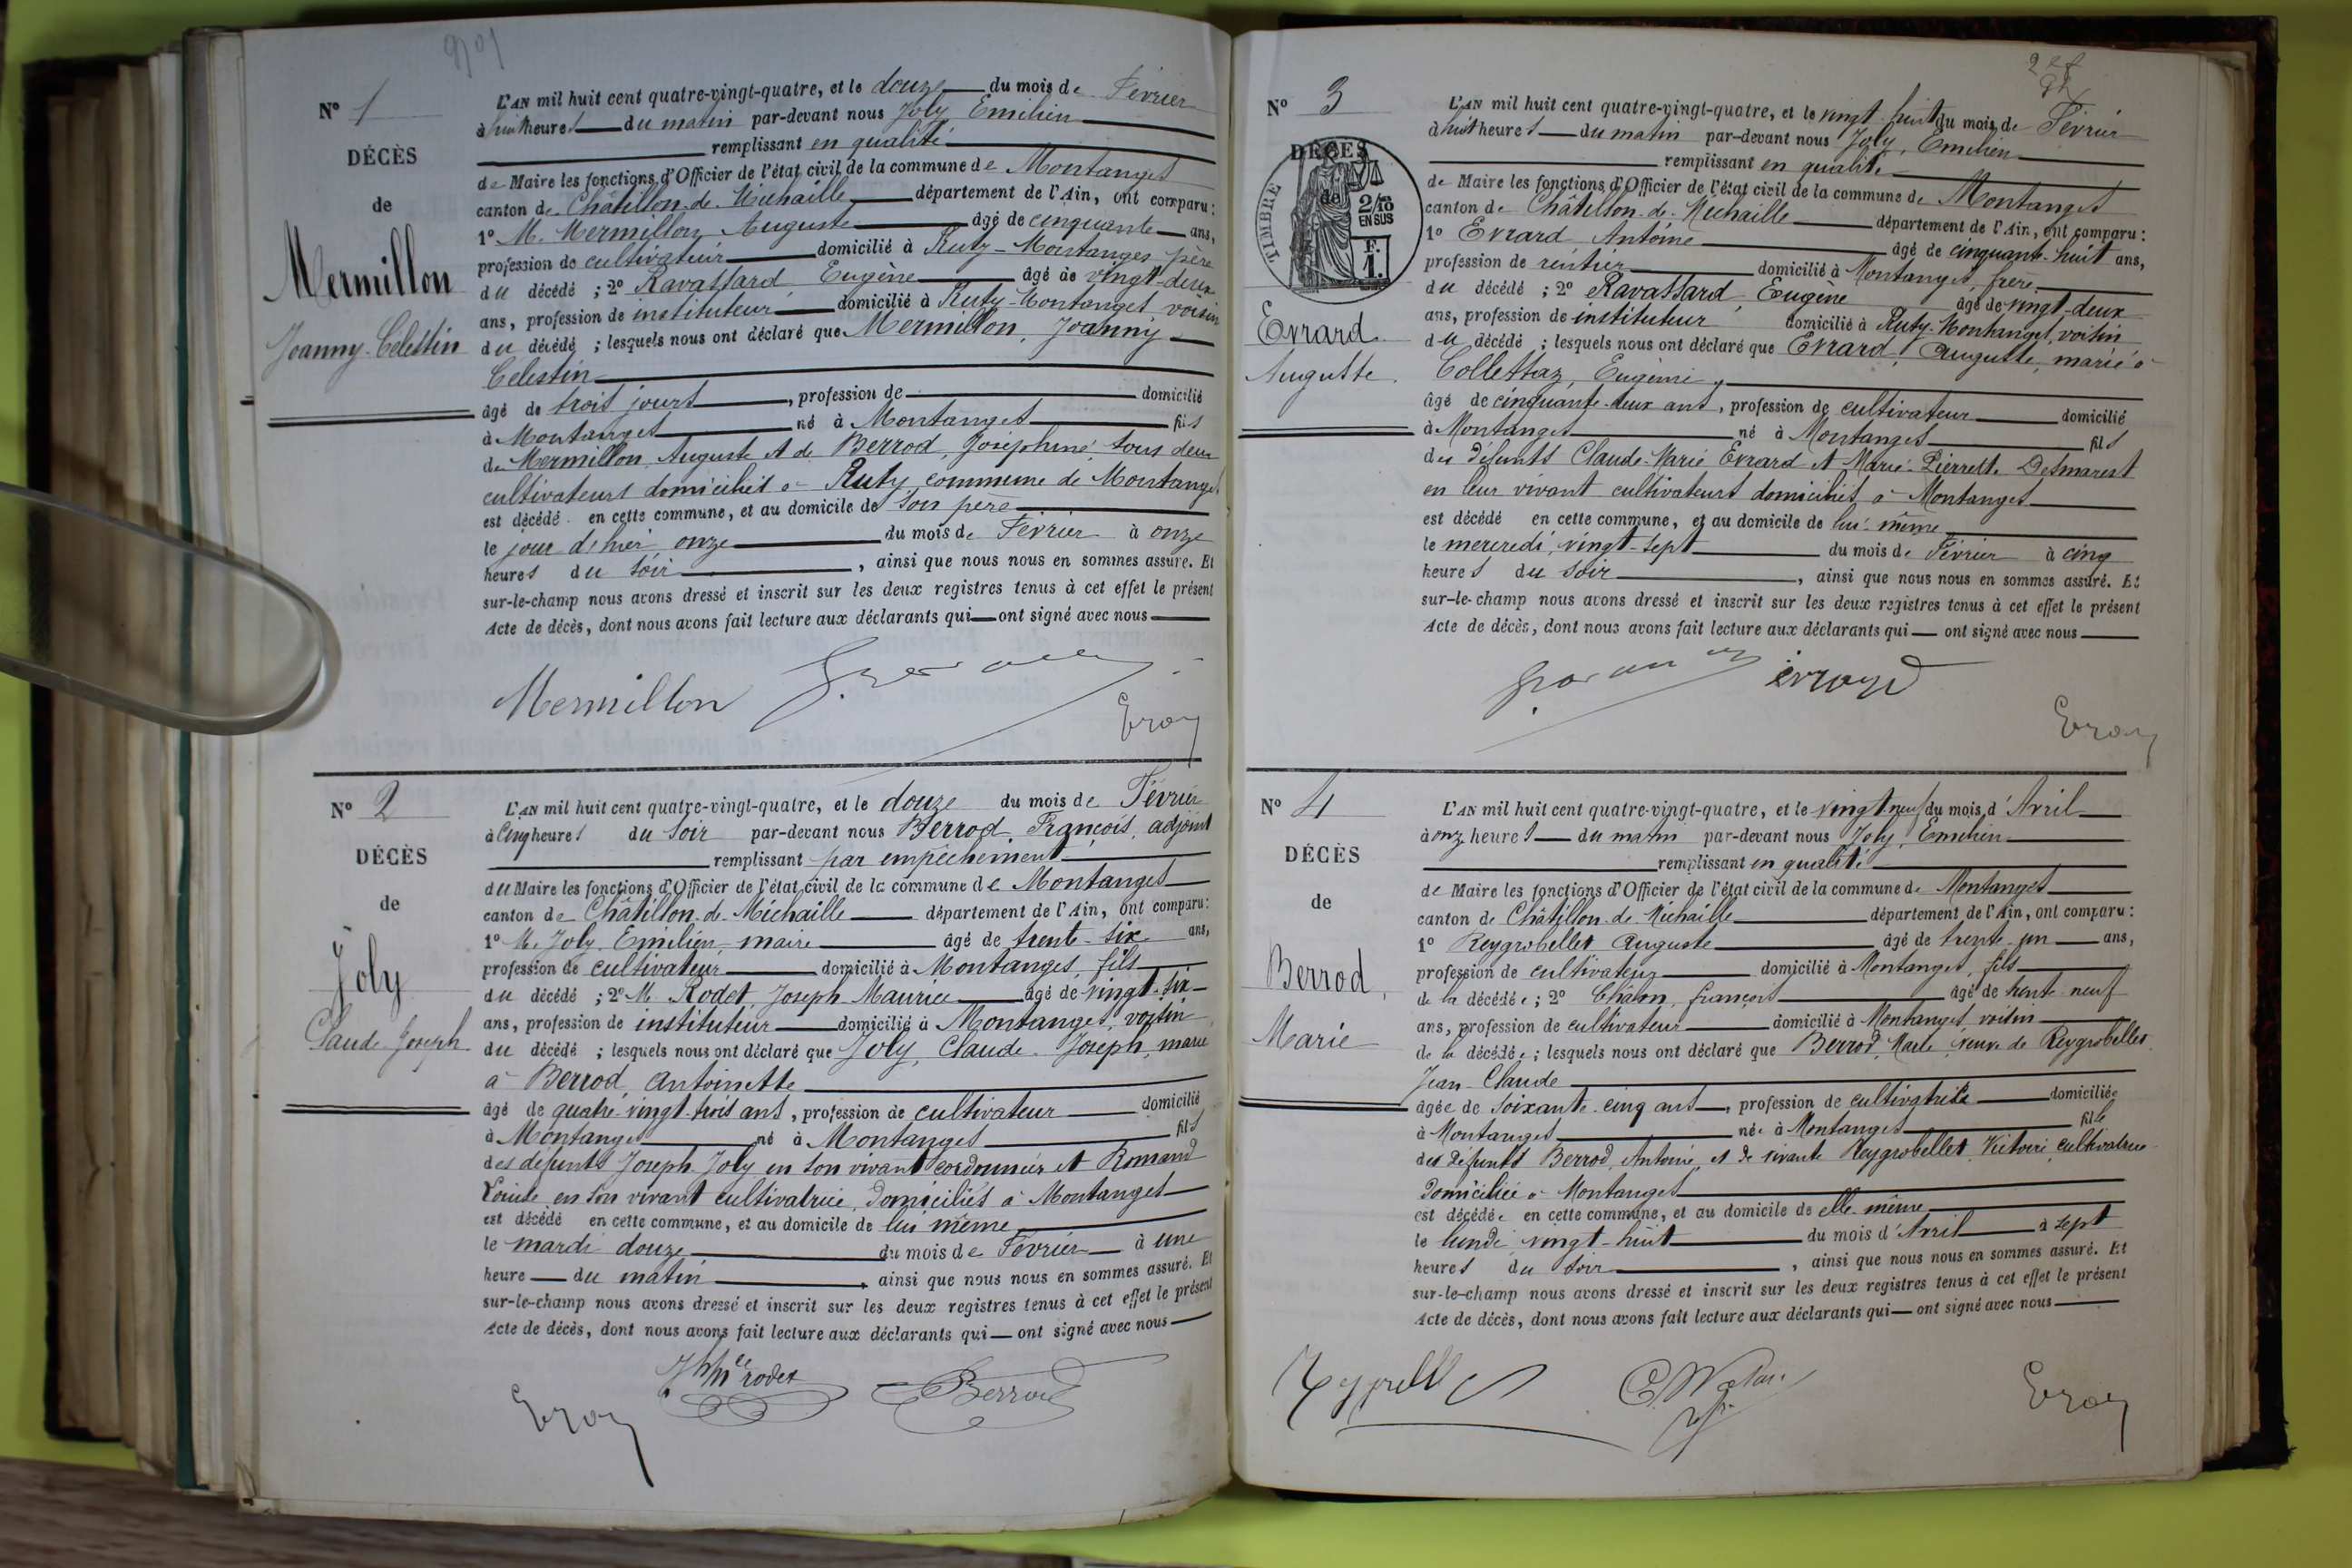 N° 1
DÉCÈS
de
Mermillon
Joanny-Célestin
L'AN mil huit cent quatre-vingt-quatre, et le douze du mois de Février
à huit heures du matin par-devant nous Joly Emilien
remplissant en qualité
de Maire les fonctions d'Officier de l'état civil de la commune de Montanges
canton de Châtillon-de-Michaille département de l'Ain, ont comparu :
1° M. Mermillon Auguste âgé de cinquante ans,
profession de cultivateur domicilié à Ruty-Montanges père
du décédé ; 2° Ravassard, Eugène âgé de vingt-deux
ans, profession de instituteur domicilié à Ruty-Montanges voisin
du décédé ; lesquels nous ont déclaré que Mermillon, Joanny
Célestin
âgé de trois jours, profession de domicilié
à Montanges né à Montanges fils
de Mermillon, Auguste et de Berrod, Joséphine, tous deux
cultivateurs domiciliés à Ruty, commune de Montanges
est décédé en cette commune, et au domicile de son père
le jour d'hier onze du mois de Février à onze
heures du soir, ainsi que nous nous en sommes assuré. Et
sur-le-champ nous avons dressé et inscrit sur les deux registres tenus à cet effet le présent
Acte de décès, dont nous avons fait lecture aux déclarants qui ont signé avec nous
Mermillon
N° 2
DÉCÈS
de
Joly
Claude-Joseph
L'AN mil huit cent quatre-vingt-quatre, et le douze du mois de Février
à cinq heures du soir par-devant nous Berrod François, adjoint
remplissant par empêchement
du Maire les fonctions d'Officier de l'état civil de la commune de Montanges
canton de Châtillon-de-Michaille département de l'Ain, ont comparu :
1° M. Joly Emilien, maire âgé de trente-six ans,
profession de cultivateur domicilié à Montanges, fils
du décédé ; 2° M Rodet, Joseph-Maurice âgé de vingt-six
ans, profession de instituteur domicilié à Montanges, voisin
du décédé ; lesquels nous ont déclaré que Joly, Claude-Joseph, marié
à Berrod Antoinette
âgé de quatre-vingt-trois ans, profession de cultivateur domicilié
à Montanges né à Montanges fils
des défunts Joseph Joly en son vivant cordonnier et Romand
Louise en son vivant cultivatrice, domiciliés à Montanges
est décédé en cette commune, et au domicile de lui même
le mardi douze du mois de Février à une
heure du matin, ainsi que nous nous en sommes assuré. Et
sur-le-champ nous avons dressé et inscrit sur les deux registres tenus à cet effet le présent
Acte de décès, dont nous avons fait lecture aux déclarants qui ont signé avec nous
rodet
Berrod
N° 3
DÉCÈS
de
TIMBRE
2/10
EN SUS
F.
1.
Evrard
Auguste
L'AN mil huit cent quatre-vingt-quatre, et le vingt-huit du mois de Février
à huit heures du matin par-devant nous Joly, Emilien
remplissant en qualité
de Maire les fonctions d'Officier de l'état civil de la commune de Montanges
canton de Châtillon-de-Michaille département de l'Ain, ont comparu :
1° Evrard Antoine âgé de cinquante-huit ans,
profession de rentier domicilié à Montanges, frère
du décédé ; 2° Ravassard, Eugène âgé de vingt-deux
ans, profession de instituteur domicilié à Ruty-Montanges, voisin
du décédé ; lesquels nous ont déclaré que Evrard, Auguste, marié à
Collettaz, Eugénie,
âgé de cinquante-deux ans, profession de cultivateur domicilié
à Montanges né à Montanges fils
des défunts Claude-Marie Evrard et Marie-Pierrette Desmarest
en leur vivant cultivateurs domiciliés à Montanges
est décédé en cette commune, et au domicile de lui-même
le mercredi, vingt-sept du mois de Février à cinq
heures du soir, ainsi que nous nous en sommes assuré. Et
sur-le-champ nous avons dressé et inscrit sur les deux registres tenus à cet effet le présent
Acte de décès, dont nous avons fait lecture aux déclarants qui ont signé avec nous
évrard
N° 4
DÉCÈS
de
Berrod,
Marie
L'AN mil huit cent quatre-vingt-quatre, et le vingt neuf du mois d'Avril
à onze heures du matin par-devant nous Joly, Emilien
remplissant en qualité
de Maire les fonctions d'Officier de l'état civil de la commune de Montanges
canton de Châtillon-de-Michaille département de l'Ain, ont comparu :
1° Reygrobellet Auguste âgé de trente-un ans,
profession de cultivateur domicilié à Montanges, fils
de la décédée ; 2° Châlon, françois âgé de trente-neuf
ans, profession de cultivateur domicilié à Montanges, voisin
de la décédée ; lesquels nous ont déclaré que Berrod, Marie, veuve de Reygrobellet
Jean-Claude
âgée de soixante-cinq ans, profession de cultivatrice domiciliée
à Montanges née à Montanges fille
des défunts Berrod, Antoine, et de vivante Reygrobellet Victoire cultivatrice
domiciliée à Montanges
est décédée en cette commune, et au domicile de elle-même
le lundi vingt-huit du mois d'Avril à sept
heures du soir, ainsi que nous nous en sommes assuré. Et
sur-le-champ nous avons dressé et inscrit sur les deux registres tenus à cet effet le présent
Acte de décès, dont nous avons fait lecture aux déclarants qui ont signé avec nous